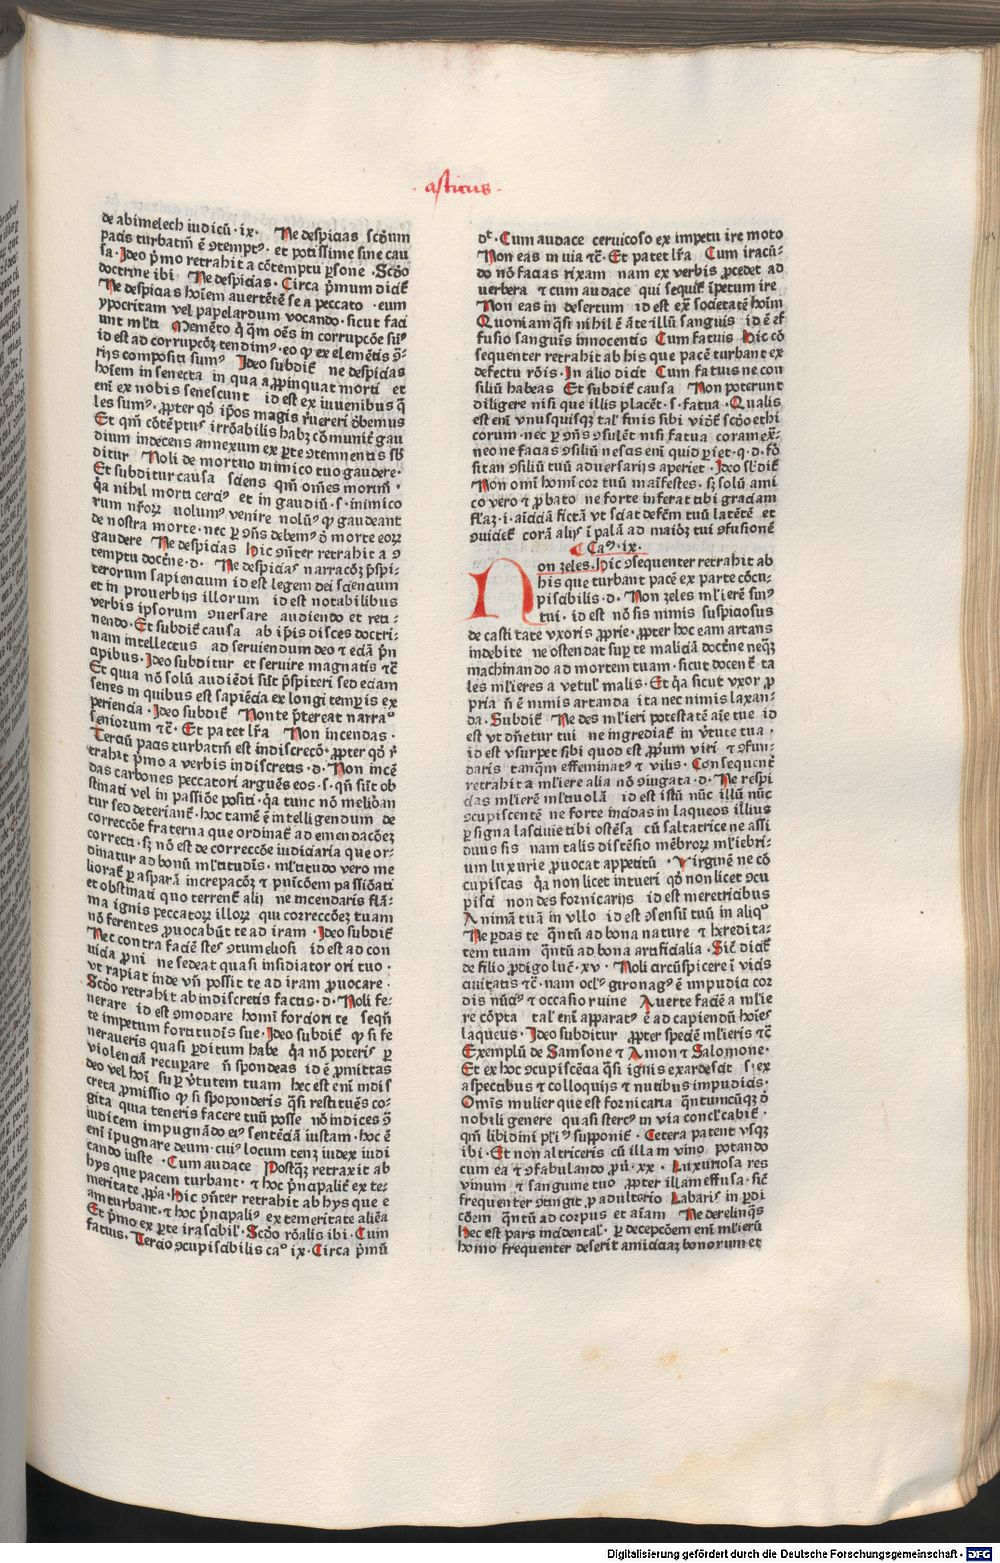 · asticus ·
de abimelech iudicū · ix · Ne despicias scđum
pacis turbatiuū ē ꝯtemptꝰ · et potissime sine cau
sa · Ideo p̄mo retrahit a cōtemptu ꝑsone · Scđo
doctrine ibi Ne despicias · Circa p̄mum dicit̄
Ne despicias hoīem auertētē se a peccato · eum
ypocritam vel papelardum vocando · sicut faci
unt ml̄ti Memēto q̄ qm̄ oēs in corrupcōe sūꝰ
id est ad corrupcōꝫ tendimꝰ · eo ꝙ ex elemētis ꝯ̄-
rijs compositi sumꝰ Ideo subdit̄ ne despicias
hoīem in senecta in qua aꝓpinquat morti et
enī ex nobis senescunt id est ex iuuenibus q̄
les sumꝰ · ꝓpter qđ ip̄os magis r̄uereri ďbemus
Et qm̄ cōtēptuꝫ irrōabilis habꝫ cōmunit̄ gau
dium indecens annexum ex ꝑte ꝯtemnentis sb̄
ditur Noli de mortuo inimico tuo gaudere ·
Et subditur causa sciens qm̄ om̄es morim̄ ·
q̄a nihil morti cerciꝰ et in gaudiū · s · inimico
rum nr̄oꝝ uolumꝰ venire nolūꝰ ꝙ gaudeant
de nostra morte · nec ꝑ ꝯn̄s debemꝰ ď morte eoꝝ
gaudere Ne despicias Hic ꝯn̄ter retrahit a ꝯ
temptu doctrīne · d · Ne despicias narracōꝫ p̄spi-
terorum sapiencium id est legem dei scientium
et in prouerbijs illorum id est notabilibus
verbis ipsorum ꝯuersare audiendo et reti-
nendo · Et subdit̄ causa ab ip̄is disces doctri-
nam intellectus ad seruiendum deo ⁊ eciā p̄n
cipibus · Ideo subditur et seruire magnatis ⁊c̄
Et quia nō solū audiēdi sūt p̄spiteri sed eciam
senes in quibus est sapiēcia ex longi temꝑis ex
periencia · Ideo subdit̄ Non te p̄tereat narraº
seniorum ⁊c̄ · Et patet lr̄a Non incendas ·
Terciū pacis turbatiuū est indiscrecō · ꝓpter qđ r̄
trahit p̄mo a verbis indiscretis · d · Non incē
das carbones peccatori arguēs eos · s · qn̄ sūt ob
stinati vel in passiōe positi · q̄a tunc nō melior̄an
tur sed deteriant̄ · hoc tamē ē intelligendum de
correccōe fraterna que ordinat̄ ad emendacōeꝫ
correcti · sꝫ nō est de correccōe iudiciaria que or-
dinatur ad bonū ml̄titudīs · ml̄titudo vero me
liorat̄ ꝑ asparā increpacōꝫ ⁊ pūicōem passiōati
et obstinati quo terrent̄ alij ne incendaris flā-
ma ignis peccatoꝝ illoꝝ qui correccōeꝫ tuam
nō ferentes ꝓuocabūt te ad iram · Ideo subdit̄
Nec contra faciē stes ꝯtumeliosi id est ad con
uicia ꝓni ne sedeat quasi insidiator ori tuo ·
vt rapiat inde vn̄ possit te ad iram ꝓuocare ·
Scđo retrahit ab indiscretis factis · d · Noli fe-
nerare id est ꝯmodare homī forciori te seqūt̄
te impetum fortitudīs sue · Ideo subdit̄ ꝙ si fe
neraueris quasi ꝑditum habe q̄a nō poteris ꝑ
violenciā recuperare n̄ spondeas id ē ꝓmittas
deo vel hoī suꝑ v̄tutem tuam hec est enī indis
creta ꝓmissio ꝙ si spoponderis q̄si restituēs co-
gita qua teneris facere tuū posse nō indices ꝯ̄
iudicem impugnādo eiꝰ sentēciā iustam · hoc ē
enī īpugnare deum · cuiꝰ locum tenꝫ iudex iudi
cando iuste · Cum audace Postq̄ꝫ retraxit ab
hys que pacem turbant · ⁊ hoc p̄ncipalit̄ ex te-
meritate ꝓp̄a · Hic ꝯn̄ter retrahit ab hys que e
am turbant · ⁊ hoc p̄ncipaliꝰ ex temeritate aliēa
Et p̄mo ex ꝑte irascibil̄ · Scđo rōalis ibi · Cum
fatuis · Tercio ꝯcupiscibilis caº ix · Circa p̄mū
dt̄ · Cum audace ceruicoso ex impetu ire moto
Non eas in via ⁊c̄ · Et patet lr̄a Cum iracū-
do nō facias rixam nam ex verbis ꝓcedet ad
verbera ⁊ cum audace qui sequit̄ īpetum ire
Non eas in desertum id est ex̄ societatē hoīm
Quoniam q̄si nihil ē āte illū sanguis id ē ef
fusio sanguīs innocentis Cum fatuis Hic cō
sequenter retrahit ab his que pacē turbant ex
defectu rōis · In alio dicit Cum fatuis ne con
siliū habeas Et subdit̄ causa Non poterunt
diligere nisi que illis placēt · s · fatua · Qualis
est enī vnusquisqꝫ tal̄ finis sibi vidēt̄ scđo ethi
corum · nec ꝑ ꝯn̄s ꝯsulēt nisi fatua coram ex̄-
neo ne facias ꝯsiliū nescis enī quid ꝑiet · q · d · fō
sitan ꝯsiliū tuū aduersarijs aperiet · Ideo sb̄dit̄
Non omī homī cor tuū māifestes · sꝫ solū ami
co vero ⁊ ꝓbato ne forte inferat tibi graciam
fl̄aꝫ · i · aīciciā fictā vt sciat defc̄m tuū latētē et
ꝯuiciet̄ corā alijs ī palā ad maiōꝫ tui ꝯfusionē
Caº · ix ·
Non zeles · Hic ꝯsequenter retrahit ab
his que turbant pacē ex parte cōcu-
piscibilis · d · Non zeles ml̄ierē sinꝰ
tui · id est nō sis nimis suspiciosus
de castitate vxoris ꝓprie · ꝓpter hoc eam artans
indebite ne ostendat suꝑ te maliciā doctrīe neqꝫ
machinando ad mortem tuam · sicut docent̄ ta
les ml̄ieres a vetul̄ malis · Et q̄a sicut vxor ꝓ
pria n̄ ē nimis artanda ita nec nimis laxan-
da · Subdit̄ Ne des ml̄ieri potestatē aīe tue id
est vt dn̄etur tui ne ingrediat̄ in v̄tute tua ·
id est vsurpet sibi quod est ꝓpium viri ⁊ ꝯfun-
daris tanq̄m effeminatꝰ ⁊ vilis · Consequent̄
retrahit a ml̄iere alia nō ꝯiugata · d · Ne respi
cias ml̄ierē ml̄tiuolā id est istū nūc illū nūc
ꝯcupiscentē ne forte incidas in laqueos illius
ꝑ signa lasciuie tibi ostēsa cū saltatrice ne assi
duus sis nam talis distēsio mēbroꝝ ml̄iebri-
um luxurie ꝓuocat appetitū · Virginē ne cō
cupiscas q̄a non licet intueri qđ non licet ꝯcu
pisci non des fornicarijs id est meretricibus
Animā tuā in vllo id est ꝯsensū tuū in aliqº
Ne ꝑdas te q̄ntū ad bona nature ⁊ heredita-
tem tuam q̄ntū ad bona artificialia · Sic̄ dicit̄
de filio ꝓdigo luc̄ · xv · Noli circūspicere ī vicis
ciuitatis ⁊c̄ · nam oclꝰ gironagꝰ ē impudici cor
dis nūciꝰ ⁊ occasio ruine Auerte faciē a ml̄ie
re cōpta tal̄ enī apparatꝰ ē ad capiendū hoīes
laqueus · Ideo subditur ꝓpter speciē ml̄ieris ⁊c̄
Exemplū de Samsone ⁊ Amon ⁊ Salomone ·
Et ex hoc ꝯcupiscēcia q̄si ignis exardescit s · ex
aspectibus ⁊ colloquijs ⁊ nutibus impudicis ·
Omīs mulier que est fornicaria q̄ntumcūqꝫ ď
nobili genere quasi stercꝰ in via concl̄cabit̄ ·
qm̄ libidini pl̄iꝰ supponit̄ · Cetera patent vsqꝫ
ibi · Et non altriceris cū illa m vino potando
cum ea ⁊ ꝯfabulando ꝓū · xx · Luxuriosa res
vinum ⁊ sanguine tuo ꝓpter illam effusa · sic̄
frequenter ꝯtingit ꝓ adulterio Labaris in ꝑdi
cōem q̄ntū ad corpus et aīam Ne derelinqꝰs
Hec est pars incidental̄ · ꝑ decepcōem enī ml̄ierū
homo frequenter deserit amiciciaꝫ bonorum et
Digitalisierung gefördert durch die Deutsche Forschungsgemeinschaft - DFG